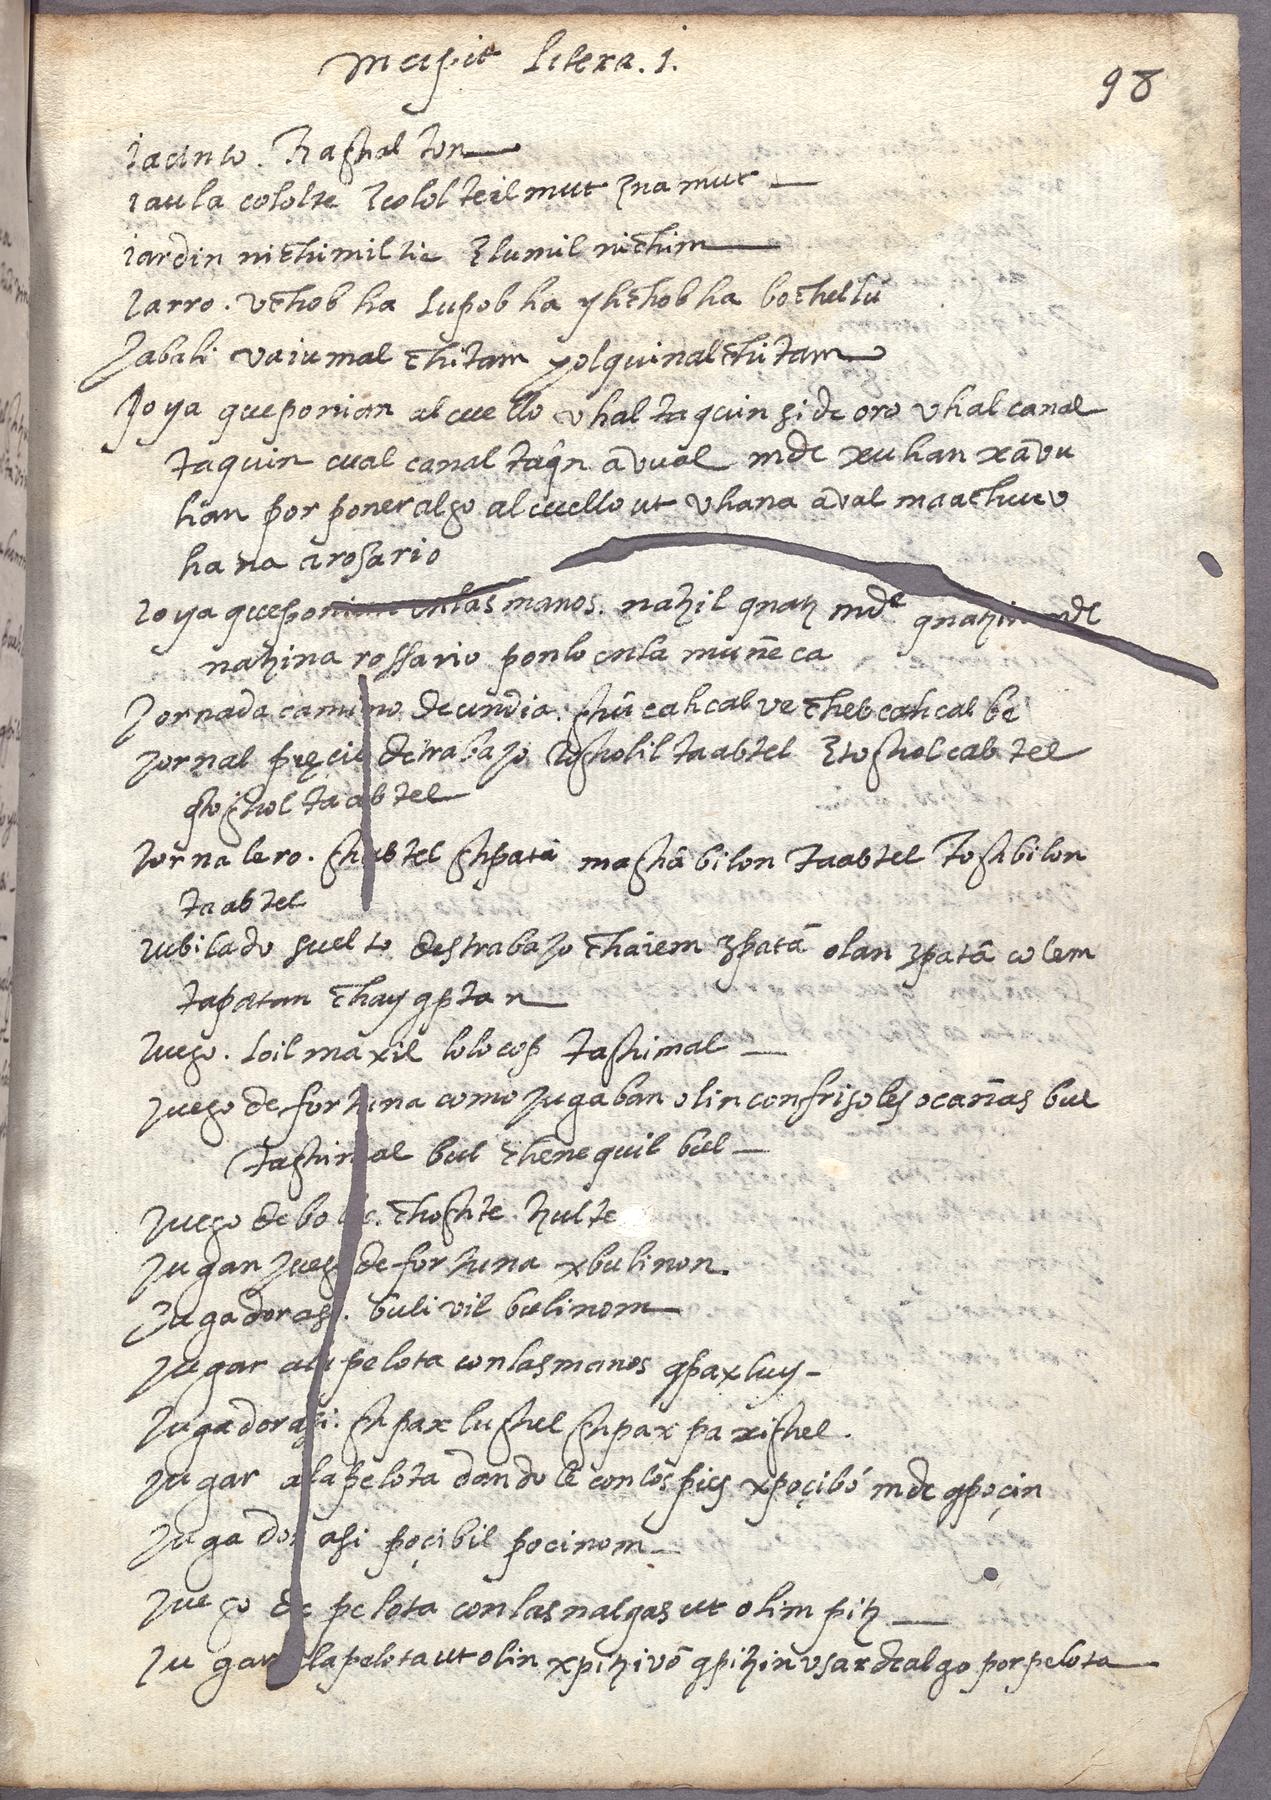 yncipit Litera. i.
98
iacinto. tzaghal ton
iaula cololte zcololteil mut zna mut
iardin nichimiltic zlumil nichim
Jarro. vchob ha Lupob ha yhchobha bochellū
Jabali vaiumal chitam yolquinal chitam
Joya que ponian al cuello vhal taquin si de oro vhal canal
taquin cual canal taqn̄ āvual mdc xuhan xāvu
hān por poner algo al cuello ut vhana aval maachuu v
ha na a rosario
Joya que ponian en las manos. natzil qnatz mdc qnatzin mdc
natzina rossario ponlo en la muñeca
Jornada camino de un dia. ghū cahcal ve cheb cahcal be
Jornal preçio de trabajo toghohil taabtel ztoghol cabtel
qtoghol taabtel
Jornalero. ghabtel ghpatā maghābilon taabtel toghbilon
taabtel
Jubilado suelto destrabajo chaiem zpatā olan zpatā colem
tapatan chay qptan
Juego. Loil maxil lolocop taghimal
Juego de fortuna como jugaban olin con frisoles o cañas bul
taghimal bul chenequil bul
Juego de bolic. choghte tzulte
Jugar juego de fortuna xbulinon.
Jugador asi. bulivil bulinom
Jugar ala pelota con las manos qpaxluy
Jugador asi. ghpax lughel ghpax paxighel.
Jugar ala pelota dandole con los pies xpoçibō mdc qpoçin
Jugador asi poçibil pocinom
Juego de pelota con las nalgas ut olim pitz
Jugar ala pelota ut olin xpitzivō qpitzin usar de algo por pelota